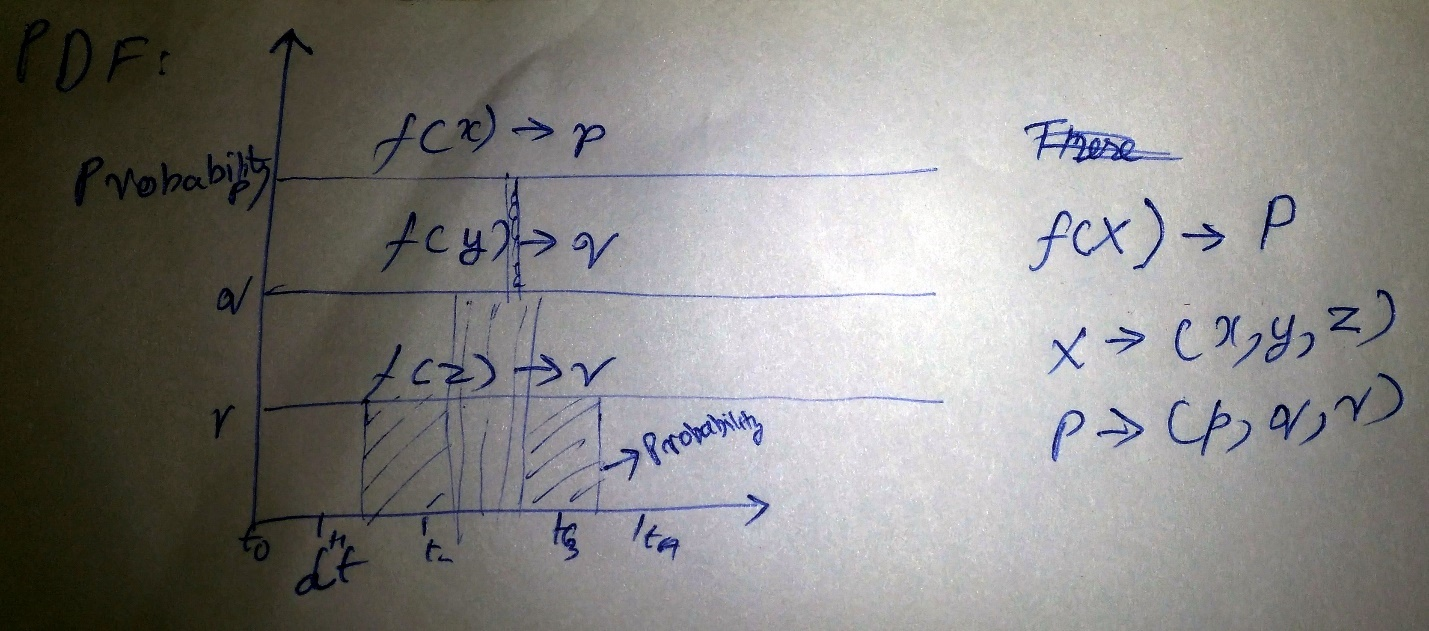 PDF:
f(x) → p
Probability
p
f(y) → q
q
f(z) → r
r
→ Probability
t₀
t₁
t₂
t₃
t₄
dt
f(X) → P
X → (x, y, z)
P → (p, q, r)